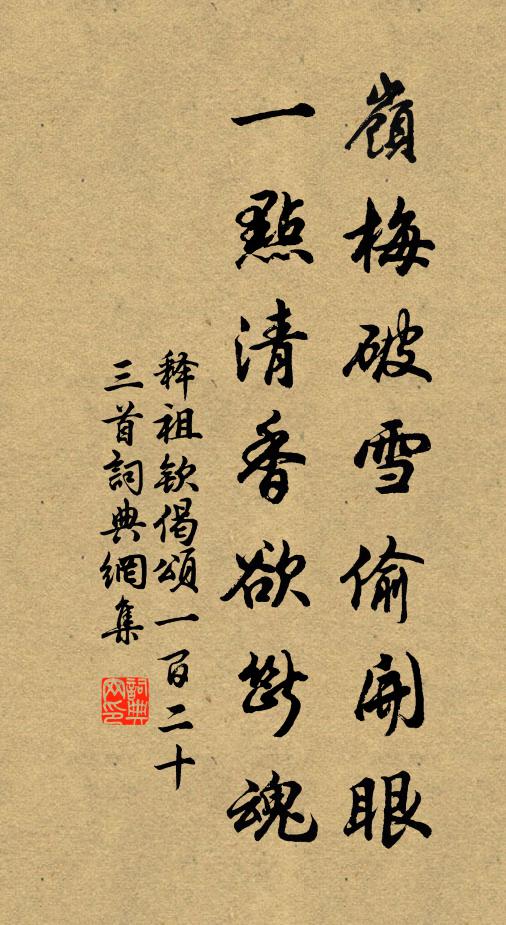 嶺梅破雪偷開眼
一點清香欲斷魂
释祖欽偈頌一百二十
三首詞典網集
詞典
网印